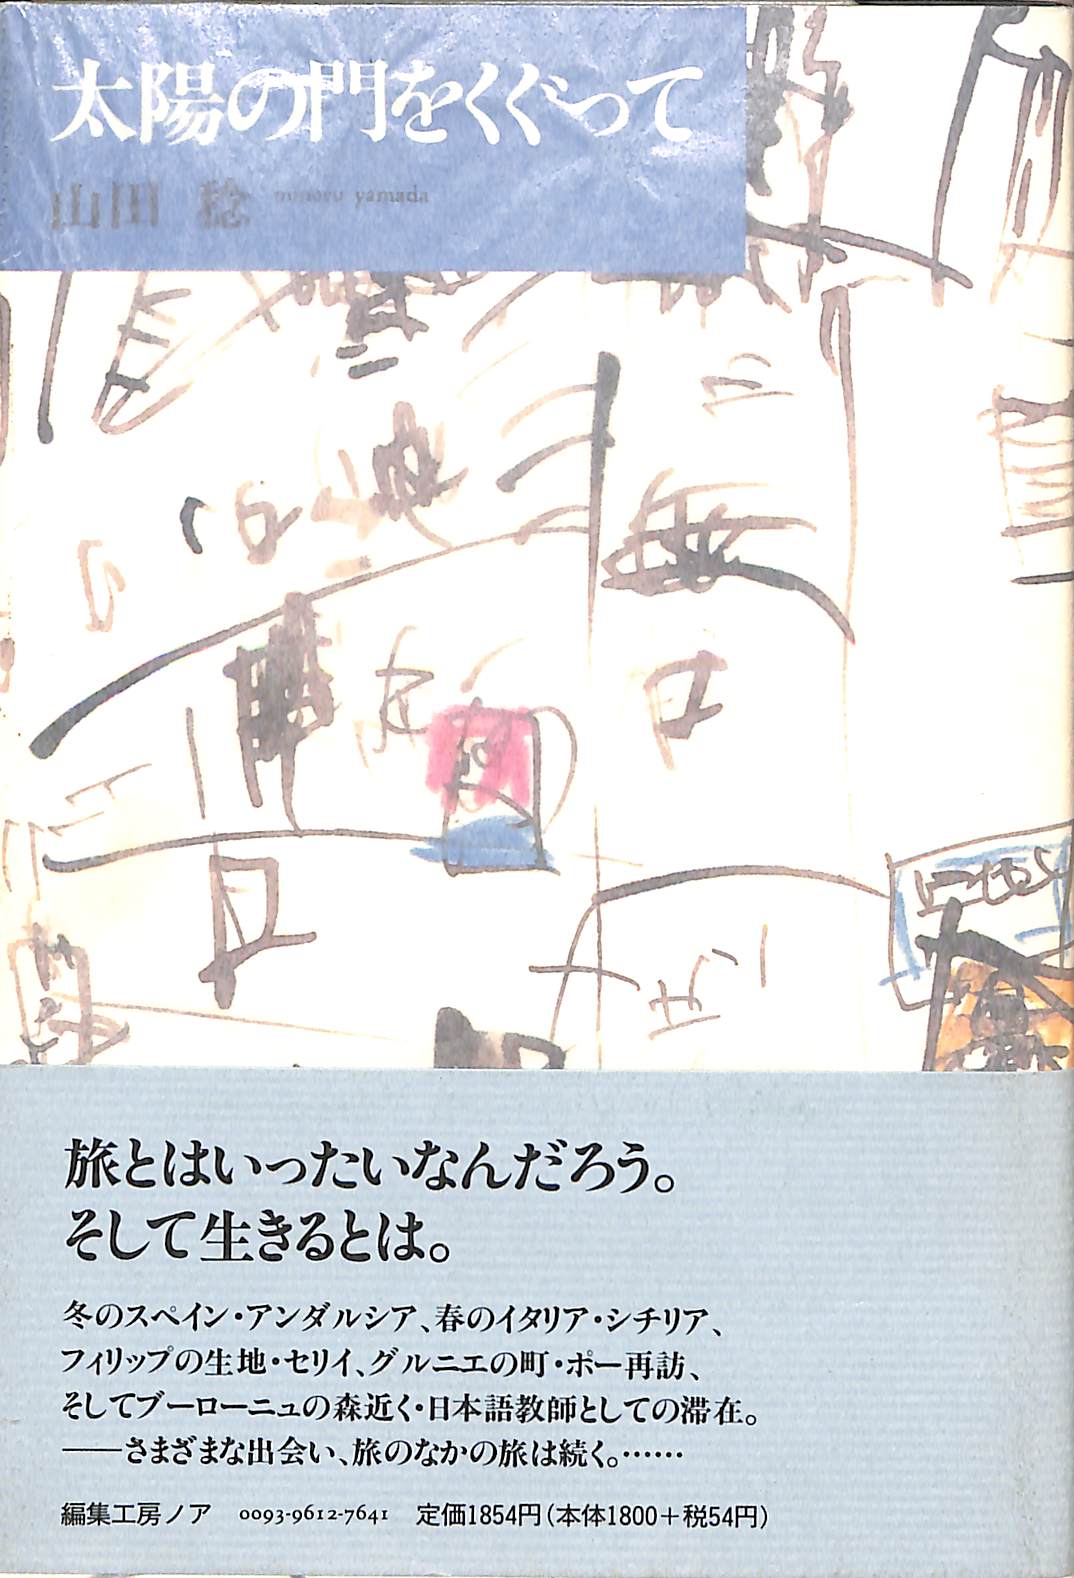 太陽の門をくぐって
山田 稔 minoru yamada
旅とはいったいなんだろう。
そして生きるとは。
冬のスペイン・アンダルシア、春のイタリア・シチリア、
フィリップの生地・セリイ、グルニエの町・ポー再訪、
そしてブーローニュの森近く・日本語教師としての滞在。
――さまざまな出会い、旅のなかの旅は続く。……
編集工房ノア 0093-9612-7641 定価1854円(本体1800+税54円)